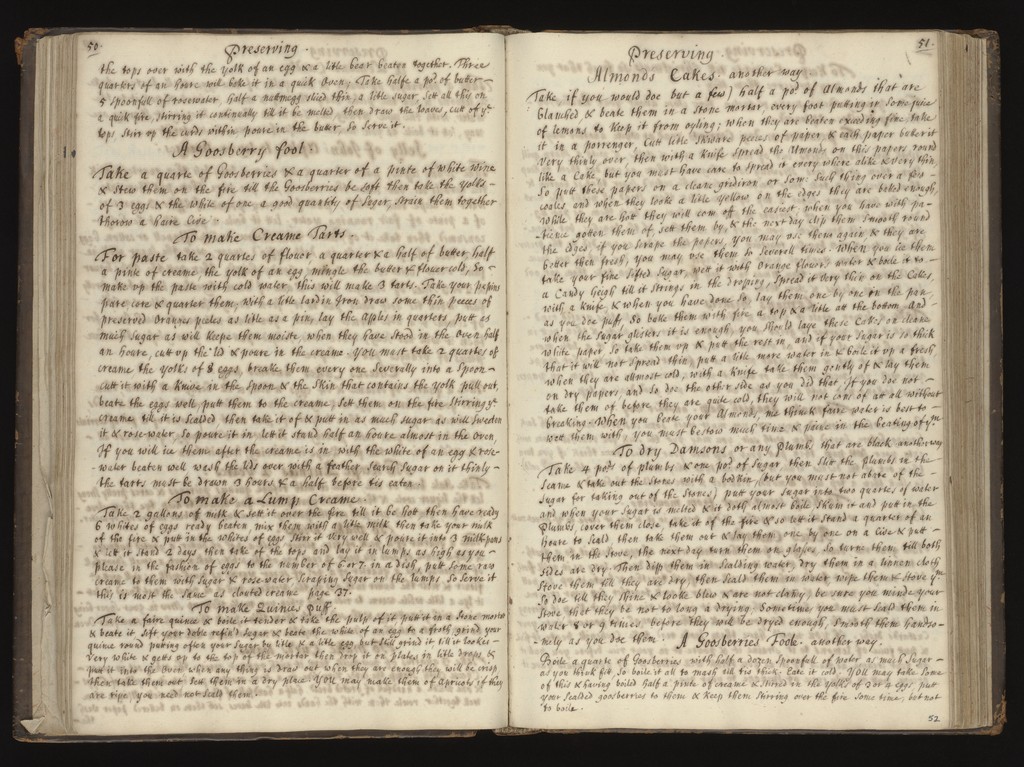 50.
Preserving.
the tops over with the yolk of an egg & a litle bear beaten together. Three
quarters of an houre will bake it in a quick Oven; Take halfe a po.d of butter
5 spoonfull of rosewater half a nuttmegg slied thin, a litle sugar, sett all this on
a quick fire, stirring it continually till it be melted, then draw the loaves, cut of ye
tops stirr up the curds within poure in the buter, So serve it.
A Goosberry fool.
Take a quarte of Goosberries & a quarter of a pinte of white wine
& stew them on the fire till the Goosberries be soft then take the yolks
of 3 eggs & the white of one a good quantity of Suger, strain them together
thorow a haire Cive.
To make Creame Tarts.
For paste take 2 quartes of flouer a quarter & a half of butter half
a pinte of creame the yolk of an egg mingle the butter & flouer cold, So
make up the paste with cold water this will make 3 tarts. Take your pepins
pare core & quarter them, with a litle lardin Iron draw some thin peeces of
preserved Oranges peeles as litle as a pin, lay the Aples in quarters, putt as
much sugar as will keepe them moiste, when they have stood in the Oven half
an houre, cutt up the lid & poure in the creame. You must take 2 quartes of
creame the yolks of 8 eggs, breake them every one severally into a Spoon
cutt it with a knive in the spoon & the skin that contains the yolk pull out,
beate the eggs well, putt them to the creame, sett them on the fire Stirring ye
creame till it is scalded then take it of & putt in as much sugar as will sweeten
it & rose-water So poure it in lett it stand half an houre almost in the Oven,
If you will ice them after the creame is in with the white of an egg & rose-
water beaten well wash the lids over with a feather Search sugar on it thinly
the tarts must be drawn 3 hours & a half before tis eaten.
To make a Lump Creame.
Take 2 gallons of milk & sett it over the fire till it be hott then have ready
6 whites of eggs ready beaten mix them with a litle milk then take your milk
of the fire & putt in the whites of eggs stirr it very well & poure it into 3 milkpans
& lett it stand 2 days then take of the tops and lay it in lumps as high as you
please in the fashion of eggs to the number of 6 or 7. in a dish, putt some raw
creame to them with sugar & rosewater Scraping sugar on the lumps So serve it
this is most the same as clouted creame page 37.
To make Quinces puff.
Take a faire quince & boile it tender & take the pulp of it putt it in a Stone morter
& beate it sift your doble refin'd Sugar & beate the white of an egg to a froth, grind your
quince round putting often your sugar by litle & a litle egg but still grind it till it lookes
very white & getts up to the top of the mortar then drop it on plates in litle drops, &
putt it into the Oven when any thing is draw out when they are enough they will be crisp
then take them out sett them in a dry place. You may make them of Apricots if they
are ripe, you need not scald them.
51.
Preserving.
Almonds Cakes. another way
Take if you would doe but a few) half a po.d of Almonds that are
Blanched & beate them in a stone mortar every foot putting in some juice
of lemons to keep it from oyling; when they are beaten exceeding fine, take
it in a porrenger, Cutt litle square peeces of paper, & each paper buter it
very thinly over, then with a knife spread the Almonds on this papers round
like a Cake, but you must have care to spread it every where alike & very thin,
So putt these papers on a cleane gridiron or some such thing over a few
coales, and when they looke a litle yellow on the edges they are baked enough,
while they are hott they will com off the easiest, when you have with pa-
tience gotten them of sett them by, & the next day clip them smooth round
the edges, if you scrape the papers, you may use them again & they are
better then fresh, you may use them so severall times. When you ice them
take your fine sifted sugar, wett it with Orange flowers water & boile it to
a Candy heigh till it strings in the droping, Spread it very thin on the Cakes,
with a knife & when you have done so, lay them one by one in the pan
as you doe puff, So bake them with fire a top & a litle att the bottom, and
when the sugar glisters, it is enough, you should lays these Cakes on cleane
white paper so take them up & putt the rest in, and if your Sugar is so thick
that it will not spread thin, putt a litle more water in & boile it up a fresh
when they are allmost cold, with a knife take them gently of & lay them
on dry papers, and so doe the other side as you did that, If you doe not
take them of before they are quite cold, they will not com of at all without
breaking. When you beate your Almonds, me think faire water is best to
wett them with, you must bestow much time & paine in the beating of ym
To dry Damsons or any Plumbs that are black another way
Take 4 pod.s of plumbs & one po.d of Sugar, then slitt the plumbs in the
seame & take out the stones with a bodken, (but you must not abate of the
Sugar for taking out of the Stones) putt your sugar into two quartes of water
and when your sugar is melted & it doth almost boile skum it and put in the
Plumbs, cover them close, take it of the fire & so let it stand a quarter of an
houre to scald, then take them out & lay them one by one on a Cive & putt
them in the Stove, the next day turn them on glases So turne them till both
sides are dry. Then dip them in scalding water, dry them in a linnen cloth
Stove them till they are dry, then scald them in water, wipe them & stove ym
So doe till they shine & looke blew & are not clamy, be sure you minde your
Stove that they be not to long a drying. Sometimes you must scald them in
water 8 or 9 times, before they will be dryed enough, smooth them handso-
mely as you doe them.
A Goosberries Foole. another way.
Boile a quarte of Goosberries with half a dozen spoonfull of water as much Sugar
as you think fitt, So boile it all to mash till tis thick. Eate it cold. You may take some
of this & having boiled half a pinte of creame & stired in the yolks of 3 or 4 eggs, putt
your scalded goosberries to them & keep them stirring over the fire some time, but not
to boile.
52